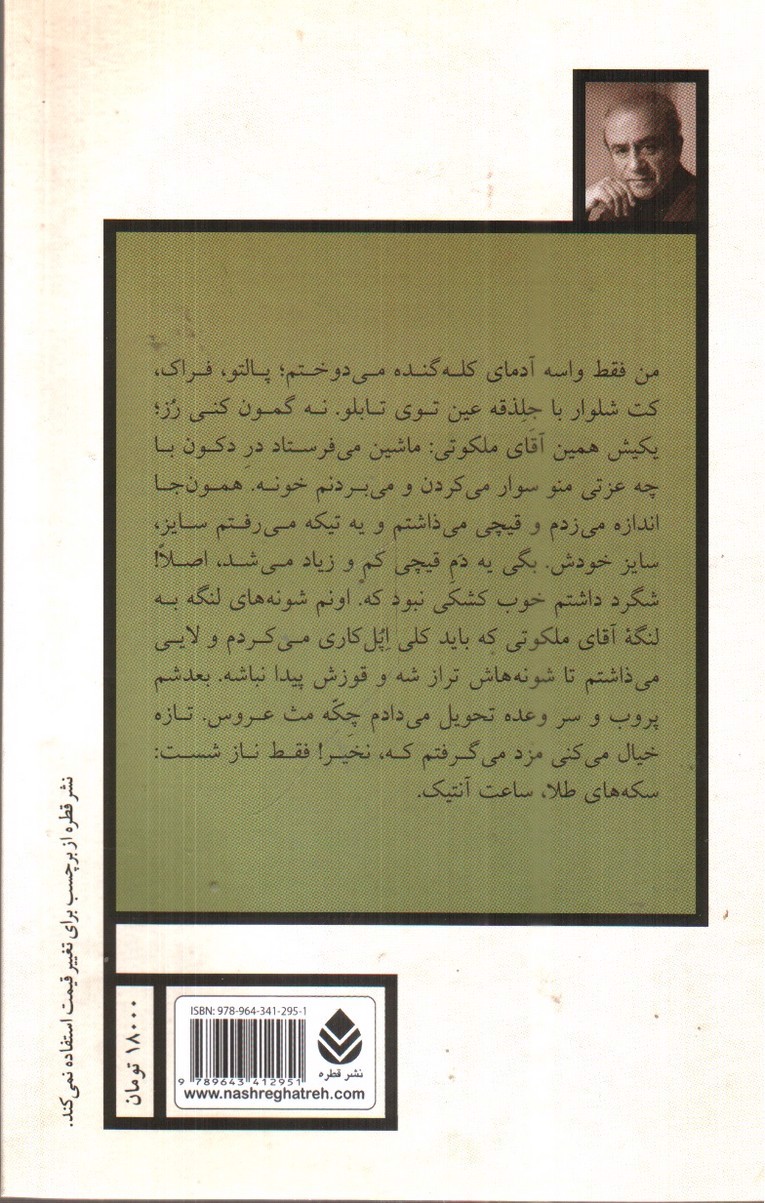 من فقط واسه آدمای کله‌گنده می‌دوختم؛ پالتو، فراک،
کت شلوار با جلِذقه عین توی تابلو. نه گمون کنی رُز؛
یکیش همین آقای ملکوتی: ماشین می‌فرستاد درِ دکون با
چه عزتی منو سوار می‌کردن و می‌بردنم خونه. همون‌جا
اندازه می‌زدم و قیچی می‌ذاشتم و یه تیکه می‌رفتم سایز،
سایز خودش. بگی یه دَمِ قیچی کم و زیاد می‌شد، اصلاً!
شگرد داشتم خوب کشکی نبود که. اونم شونه‌های لنگه به
لنگهٔ آقای ملکوتی که باید کلی اِپُل‌کاری می‌کردم و لایی
می‌ذاشتم تا شونه‌هاش تراز شه و قوزش پیدا نباشه. بعدشم
پروب و سر وعده تحویل می‌دادم چِکّه مث عروس. تازه
خیال می‌کنی مزد می‌گرفتم که، نخیر! فقط ناز شست:
سکه‌های طلا، ساعت آنتیک.
نشر قطره از برچسب برای تغییر قیمت استفاده نمی‌کند.
۱۸۰۰۰ تومان
ISBN: 978-964-341-295-1
9 789643 412951
نشر قطره
www.nashreghatreh.com